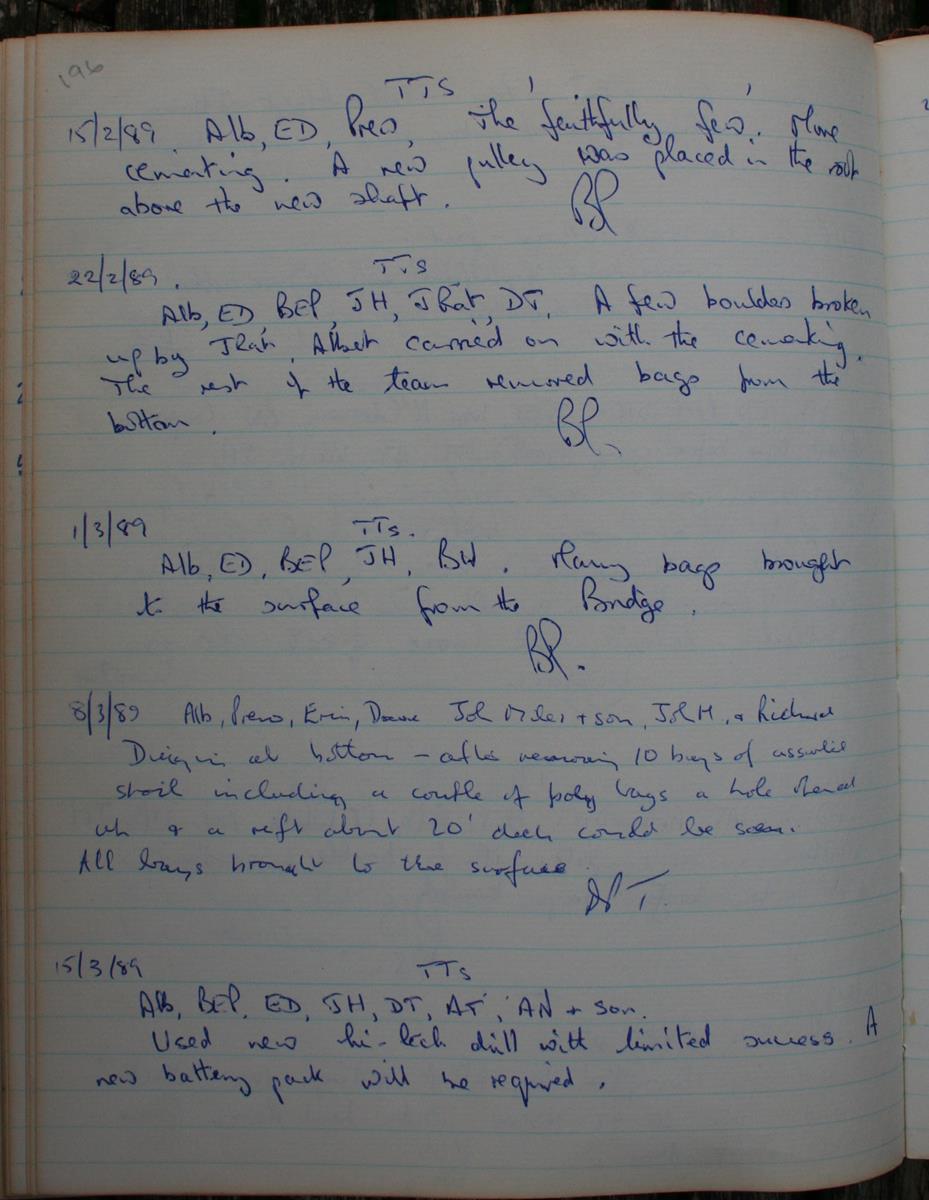 196
TTS
15/2/89. Alb, ED, Prew, The 'faithfully few'. More
cementing. A new pulley was placed in the roof
above the new shaft. BP
22/2/89. TTs
Alb, ED BEP, JH, JRat, DT. A few boulders broken
up by JRat. Albert carried on with the cementing.
The rest of the team removed bags from the
bottom. BP.
1/3/89 TTs.
Alb, ED, BEP, JH, BW. Many bags brought
to the surface from the Bridge.
BP.
8/3/89 Alb, Prew, Eric, Dave + son, JohH, + Richard
Digging at bottom - after removing 10 bags of
spoil including a couple of poly bags a hole opened
up & a rift about 20' deep could be seen.
All bags brought to the surface.
DPT.
15/3/89 TTs
Alb, BEP, ED, JH, DT, AT, AN + son.
Used new hi-tech drill with limited success. A
new battery pack will be required.